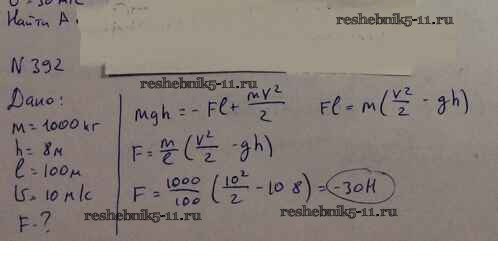 Найти А.
reshebnik5-11.ru
N 392
reshebnik5-11.ru
Дано:
m = 1000 кг
h = 8м
l = 100м
υ = 10 м/с
F - ?
mgh = - Fl + mv²/2 Fl = m(v²/2 - gh)
F = m/l (v²/2 - gh)
F = 1000/100 (10²/2 - 10 8) = -30Н
reshebnik5-11.ru
reshebnik5-11.ru